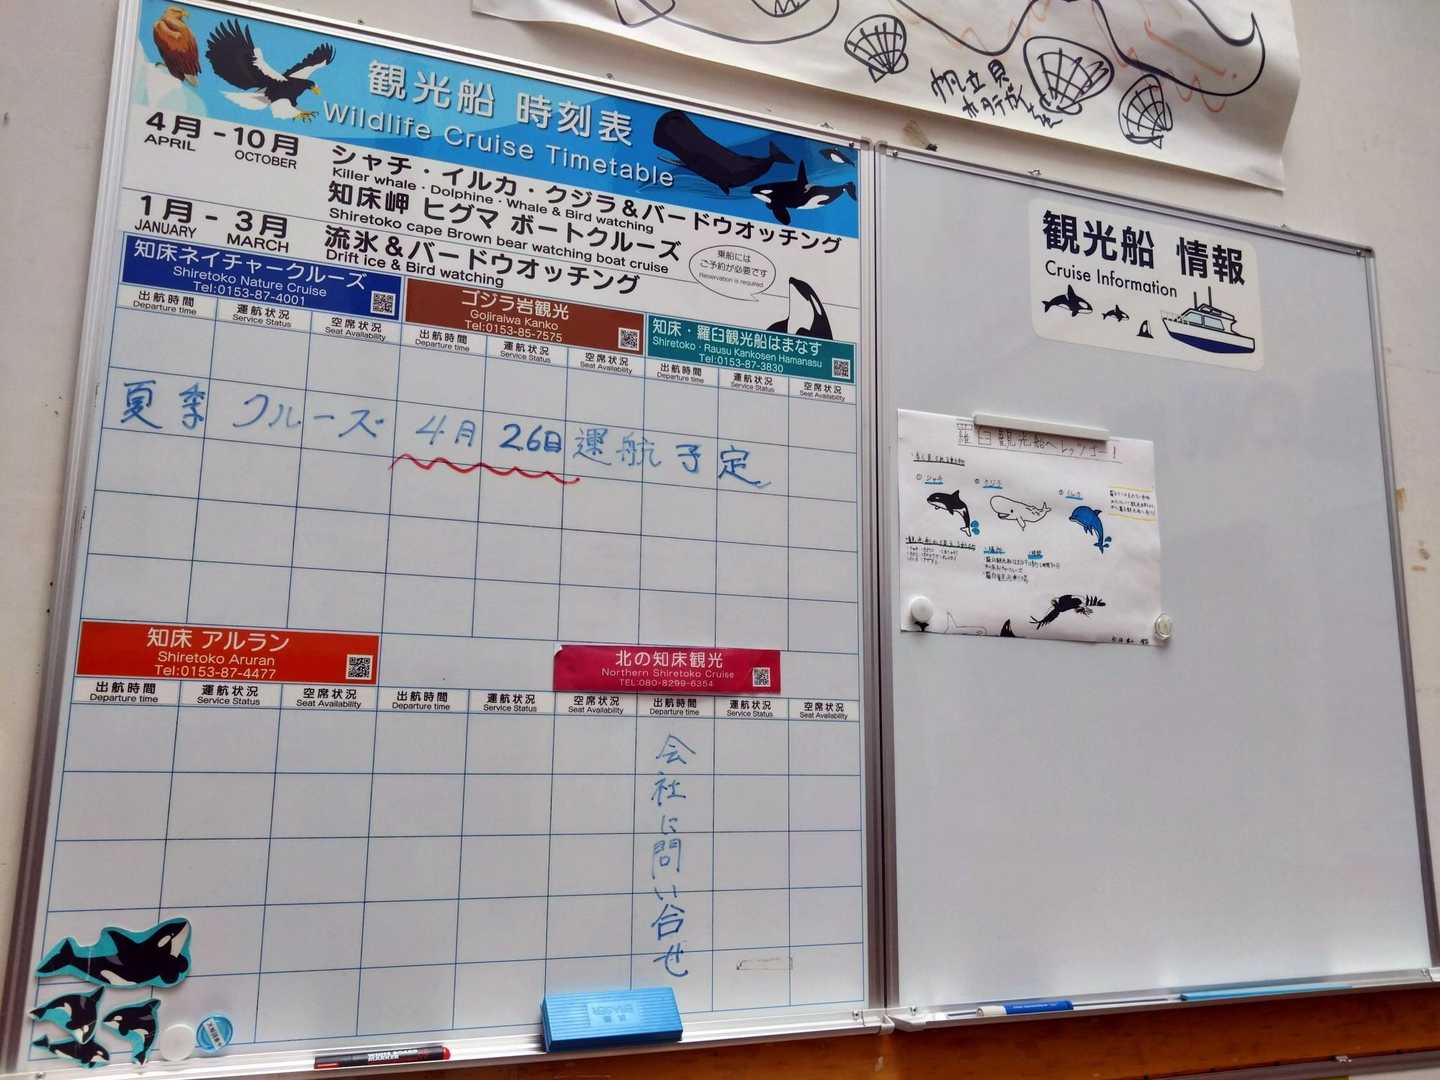 帆立貝
観光船 時刻表
Wildlife Cruise Timetable
4月 - 10月
APRIL OCTOBER
シャチ・イルカ・クジラ&バードウオッチング
Killer whale・Dolphine・Whale & Bird watching
知床岬 ヒグマ ボートクルーズ
Shiretoko cape Brown bear watching boat cruise
1月 - 3月
JANUARY MARCH
流氷&バードウオッチング
Drift ice & Bird watching
乗船には
ご予約が必要です
Reservation is required
知床ネイチャークルーズ
Shiretoko Nature Cruise
Tel:0153-87-4001
ゴジラ岩観光
Gojiraiwa Kanko
Tel:0153-85-7575
知床・羅臼観光船はまなす
Shiretoko・Rausu Kankosen Hamanasu
Tel:0153-87-3830
出航時間 運航状況 空席状況 出航時間 運航状況 空席状況 出航時間 運航状況 空席状況
Departure time Service Status Seat Availability Departure time Service Status Seat Availability Departure time Service Status Seat Availability
夏季クルーズ 4月26日運航予定
知床 アルラン
Shiretoko Aruran
Tel:0153-87-4477
北の知床観光
Northern Shiretoko Cruise
TEL:080-8299-6354
出航時間 運航状況 空席状況 出航時間 運航状況 空席状況 出航時間 運航状況 空席状況
Departure time Service Status Seat Availability Departure time Service Status Seat Availability Departure time Service Status Seat Availability
会社に問い合せ
観光船 情報
Cruise Information
羅臼観光船へレッツゴー!
① シャチ
② クジラ
③ イルカ